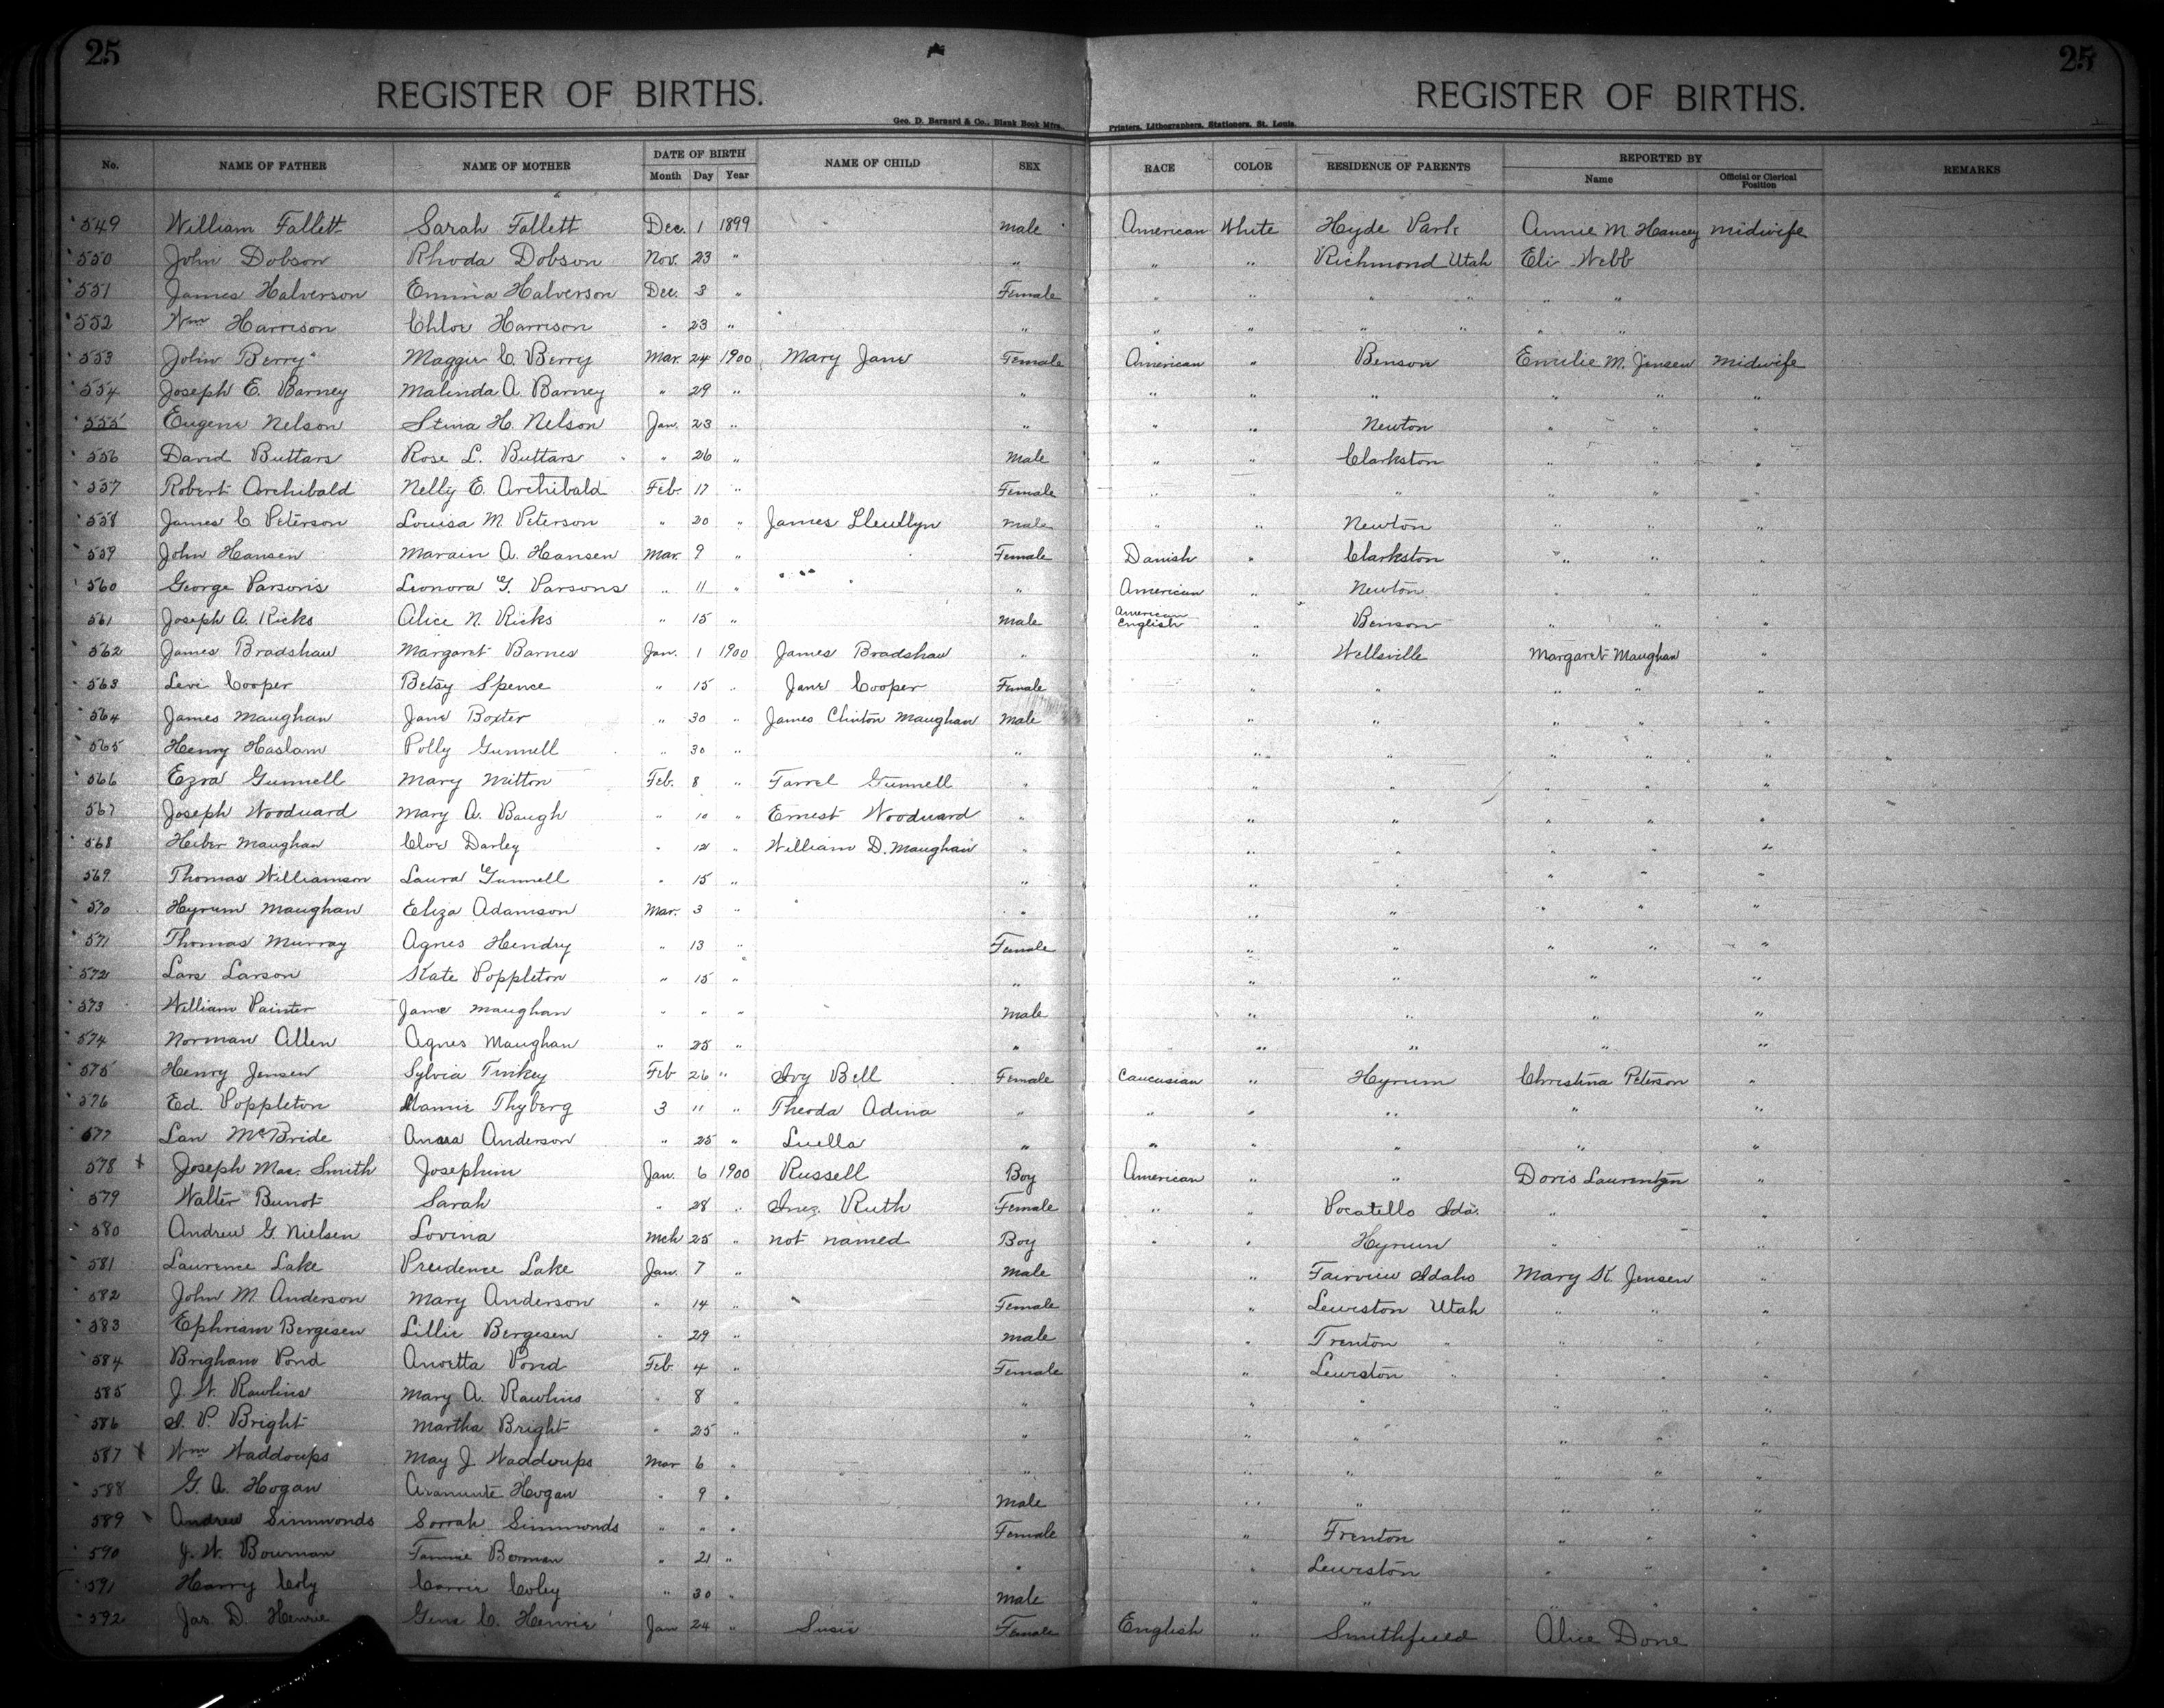 25 25
REGISTER OF BIRTHS. REGISTER OF BIRTHS.
Geo. D. Barnard & Co., Blank Book Mfrs. Printers, Lithographers, Stationers, St. Louis.
No. NAME OF FATHER NAME OF MOTHER DATE OF BIRTH Month Day Year NAME OF CHILD SEX RACE COLOR RESIDENCE OF PARENTS REPORTED BY Name Official or Clerical Position REMARKS
549 William Fallett Sarah Fallett Dec. 1 1899 Male American White Hyde Park Annie M. Hancey midwife
550 John Dobson Rhoda Dobson Nov. 23 " " " " Richmond Utah Eli Webb
551 James Halverson Emma Halverson Dec. 3 " Female " " " " " "
552 Wm Harrison Chloe Harrison " 23 " " " " " " " "
553 John Berry Maggie C. Berry Mar. 24 1900 Mary Jane Female American " Benson Emilie M. Jensen midwife
554 Joseph E. Barney Malinda A. Barney " 29 " " " " " " " "
555 Eugene Nelson Stina H. Nelson Jan. 23 " " " " Newton " " "
556 David Buttars Rose L. Buttars " 26 " Male " " Clarkston " " "
557 Robert Archibald Nelly E. Archibald Feb. 17 " Female " " " " " "
558 James C Peterson Louisa M. Peterson " 20 " James Lleullyn Male " " Newton " " "
559 John Hansen Marain A. Hansen Mar. 9 " Female Danish " Clarkston " " "
560 George Parsons Leonora G. Parsons " 11 " " American " Newton " " "
561 Joseph A. Ricks Alice N. Ricks " 15 " Male American English " Benson " " "
562 James Bradshaw Margaret Barnes Jan. 1 1900 James Bradshaw " " Wellsville Margaret Maughan "
563 Levi Cooper Betsy Spence " 15 " Jane Cooper Female " " " " "
564 James Maughan Jane Boxter " 30 " James Clinton Maughan Male " " " " "
565 Henry Haslam Polly Gunnell " 30 " " " " " " "
566 Ezra Gunnell Mary Mitton Feb. 8 " Farrel Gunnell " " " " " "
567 Joseph Wooduard Mary A. Baugh " 10 " Ernest Wooduard " " " " " "
568 Heber Maughan Cloe Darley " 12 " William D. Maughan " " " " " "
569 Thomas Williamson Laura Gunnell " 15 " " " " " " "
570 Hyrum Maughan Eliza Adamson Mar. 3 " " " " " " "
571 Thomas Murray Agnes Hendry " 13 " Female " " " " "
572 Lars Larson Kate Poppleton " 15 " " " " " "
573 William Painter Jane Maughan " " " Male " " " "
574 Norman Allen Agnes Maughan " 25 " " " " " "
575 Henry Jensen Sylvia Tinkey Feb 26 " Ivy Bell Female Caucusian " Hyrum Christina Peterson "
576 Ed. Poppleton Mamie Thyberg 3 11 " Theoda Adina " " " " " "
577 Lan McBride Anna Anderson " 25 " Luella " " " " " "
578 + Joseph Mac. Smith Josephine Jan. 6 1900 Russell Boy American " " Doris "
579 Walter Bunot Sarah " 28 " Inez Ruth Female " " Pocatello Ida. " "
580 Andrew G. Nielsen Lovina Mch 25 " not named Boy " " Hyrum " "
581 Laurence Lake Prudence Lake Jan. 7 " Male " Fairview Idaho Mary K. Jensen "
582 John M. Anderson Mary Anderson " 14 " Female " Lewiston Utah " " "
583 Ephriam Bergesen Lillie Bergesen " 29 " Male " Trenton " " " "
584 Brigham Pond Anortta Pond Feb. 4 " Female " Lewiston " " " "
585 J. W. Rawlins Mary A. Rawlins " 8 " " " " " " "
586 I. P. Bright Martha Bright " 25 " " " " " " "
587 Wm Waddoups May J. Waddoups Mar 6 " " " " " " "
588 G. A. Hogan Hogan " 9 " Male " " " " "
589 Andrew Simmonds Sarrah Simmonds " " " Female " Trenton " " "
590 J. W. Bowman Fannie Boman " 21 " " " Lewiston " " "
591 Harry Coly Carrie Coley " 30 " Male " " " " "
592 Jas. D. Henrie Gene C. Henrie Jan 24 " Susie Female English " Smithfield Alice Done